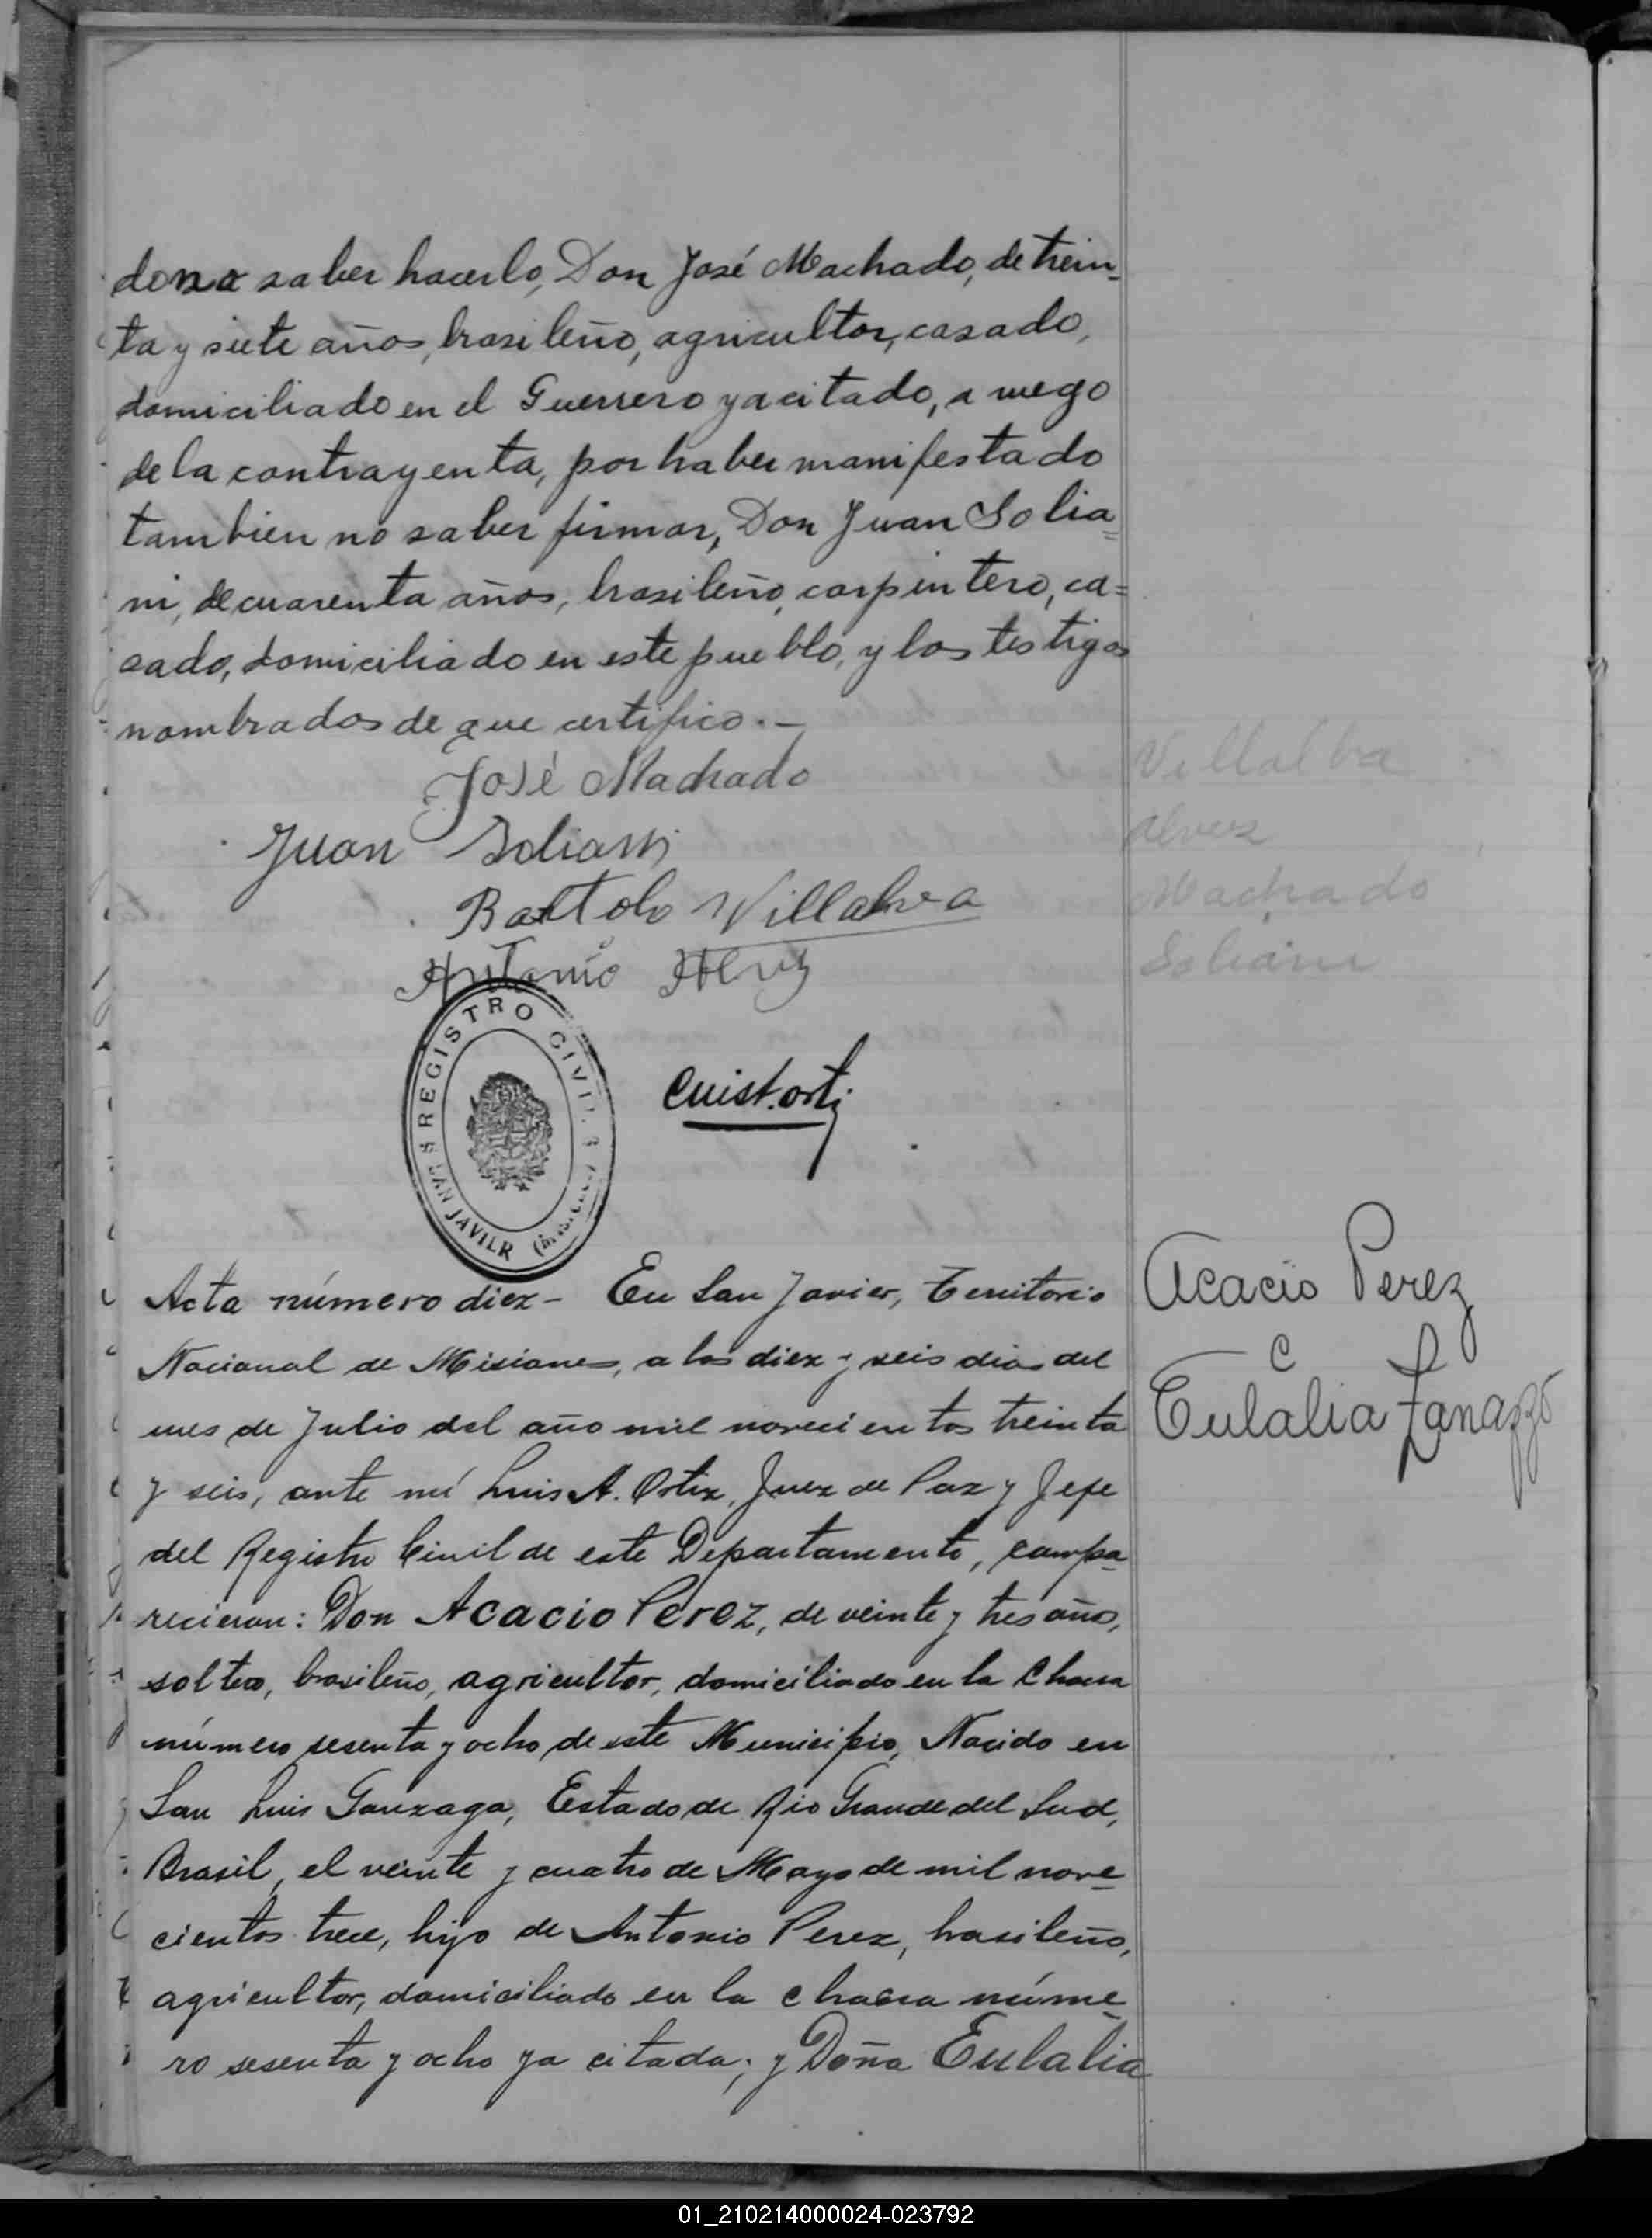 do no saber hacerlo, Don José Machado, de trein-
ta y siete años, brasileño, agricultor, casado,
domiciliado en el Guerrero ya citado, a ruego
de la contrayenta, por haber manifestado
tambien no saber firmar, Don Juan Solia=
ni, de cuarenta años, brasileño, carpintero, ca=
sado, domiciliado en este pueblo, y los testigos
nombrados de que certifico.-
José Machado
Villalba
Juan Soliani
Alvez
Bartolo Villalva
Machado
Antonio Alvez
Soliani
REGISTRO CIVIL
SAN JAVIER
Luis A. Ortiz
Acta número diez- En San Javier, Territorio
Nacional de Misiones, a los diez y seis dias del
mes de Julio del año mil novecientos treinta
y seis, ante mí Luis A. Ortiz, Juez de Paz y Jefe
del Registro Civil de este Departamento, compa-
recieron: Don Acacio Perez, de veinte y tres años,
soltero, brasileño, agricultor, domiciliado en la Chacra
número sesenta y ocho de este Municipio, Nacido en
San Luis Gonzaga, Estado de Rio Grande del Sud,
Brasil, el veinte y cuatro de Mayo de mil nove-
cientos trece, hijo de Antonio Perez, brasileño,
agricultor, domiciliado en la chacra núme-
ro sesenta y ocho ya citada; y Doña Eulalia
Acacio Perez
C
Eulalia Zanazzo
01_210214000024-023792